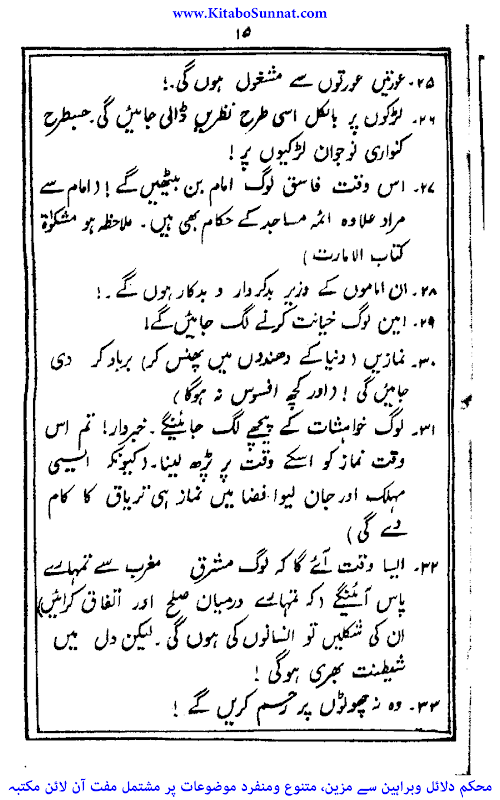 www.KitaboSunnat.com
۱۵
۲۵۔ عورتیں عورتوں سے مشغول ہوں گی۔!
۲۶۔ لڑکوں پر بالکل اسی طرح نظریں ڈالی جائیں گی۔ جسطرح
کنواری نوجوان لڑکیوں پر!
۲۷۔ اس وقت فاسق لوگ امام بن بیٹھیں گے! (امام سے
مراد علاوہ ائمہ مساجد کے حکام بھی ہیں۔ ملاحظہ ہو مشکوٰۃ
کتاب الامارت)
۲۸۔ ان اماموں کے وزیر بدکردار و بدکار ہوں گے۔!
۲۹۔ امین لوگ خیانت کرنے لگ جائیں گے!
۳۰۔ نمازیں (دنیا کے دھندوں میں پھنس کر) برباد کر دی
جائیں گی! (اور کچھ افسوس نہ ہوگا)
۳۱۔ لوگ خواہشات کے پیچھے لگ جائینگے۔ خبردار! تم اس
وقت نماز کو اسکے وقت پر پڑھ لینا۔ (کیونکہ ایسی
مہلک اور جان لیوا فضا میں نماز ہی تریاق کا کام
دے گی)
۳۲۔ ایسا وقت آئے گا کہ لوگ مشرق مغرب سے تمہارے
پاس آئینگے (کہ تمہارے درمیان صلح اور اتفاق کرائیں)
ان کی شکلیں تو انسانوں کی ہوں گی۔ لیکن دل میں
شیطنت بھری ہوگی!
۳۳۔ وہ نہ چھوٹوں پر رحم کریں گے!
محکم دلائل وبراہین سے مزین، متنوع ومنفرد موضوعات پر مشتمل مفت آن لائن مکتبہ